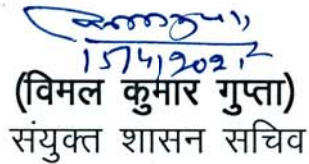 15/4/2021
(विमल कुमार गुप्ता)
संयुक्त शासन सचिव